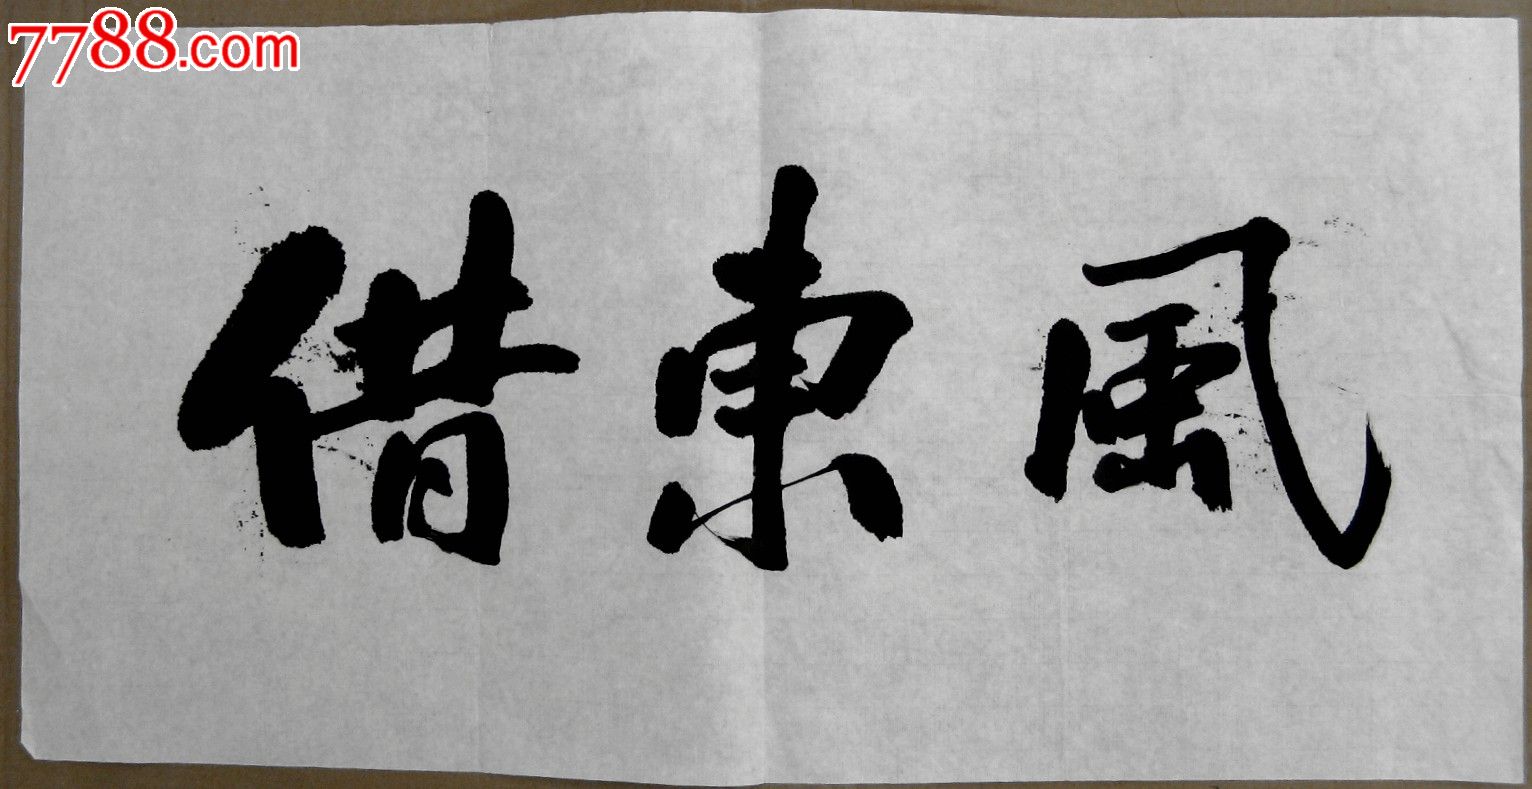 7788.com
借東風